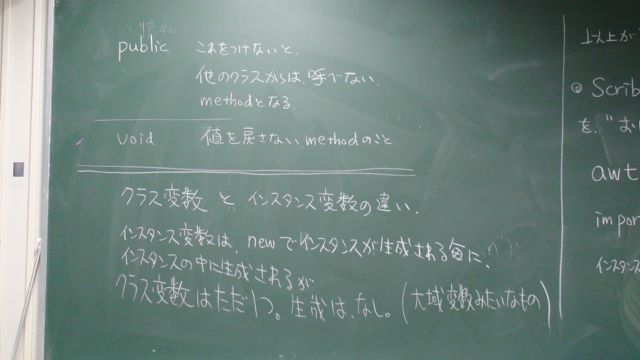 public これをつけないと、
他のクラスからは、呼べない
methodとなる
void 値を戻さない、methodのこと
クラス変数とインスタンス変数の違い.
インスタンス変数は、newでインスタンスが生成される毎に、
インスタンスの中に生成されるが
クラス変数はただ1つ。生成は、なし。(大域変数みたいなもの)
以上が
Scrib
を、"お
awt
impor
インスタンス